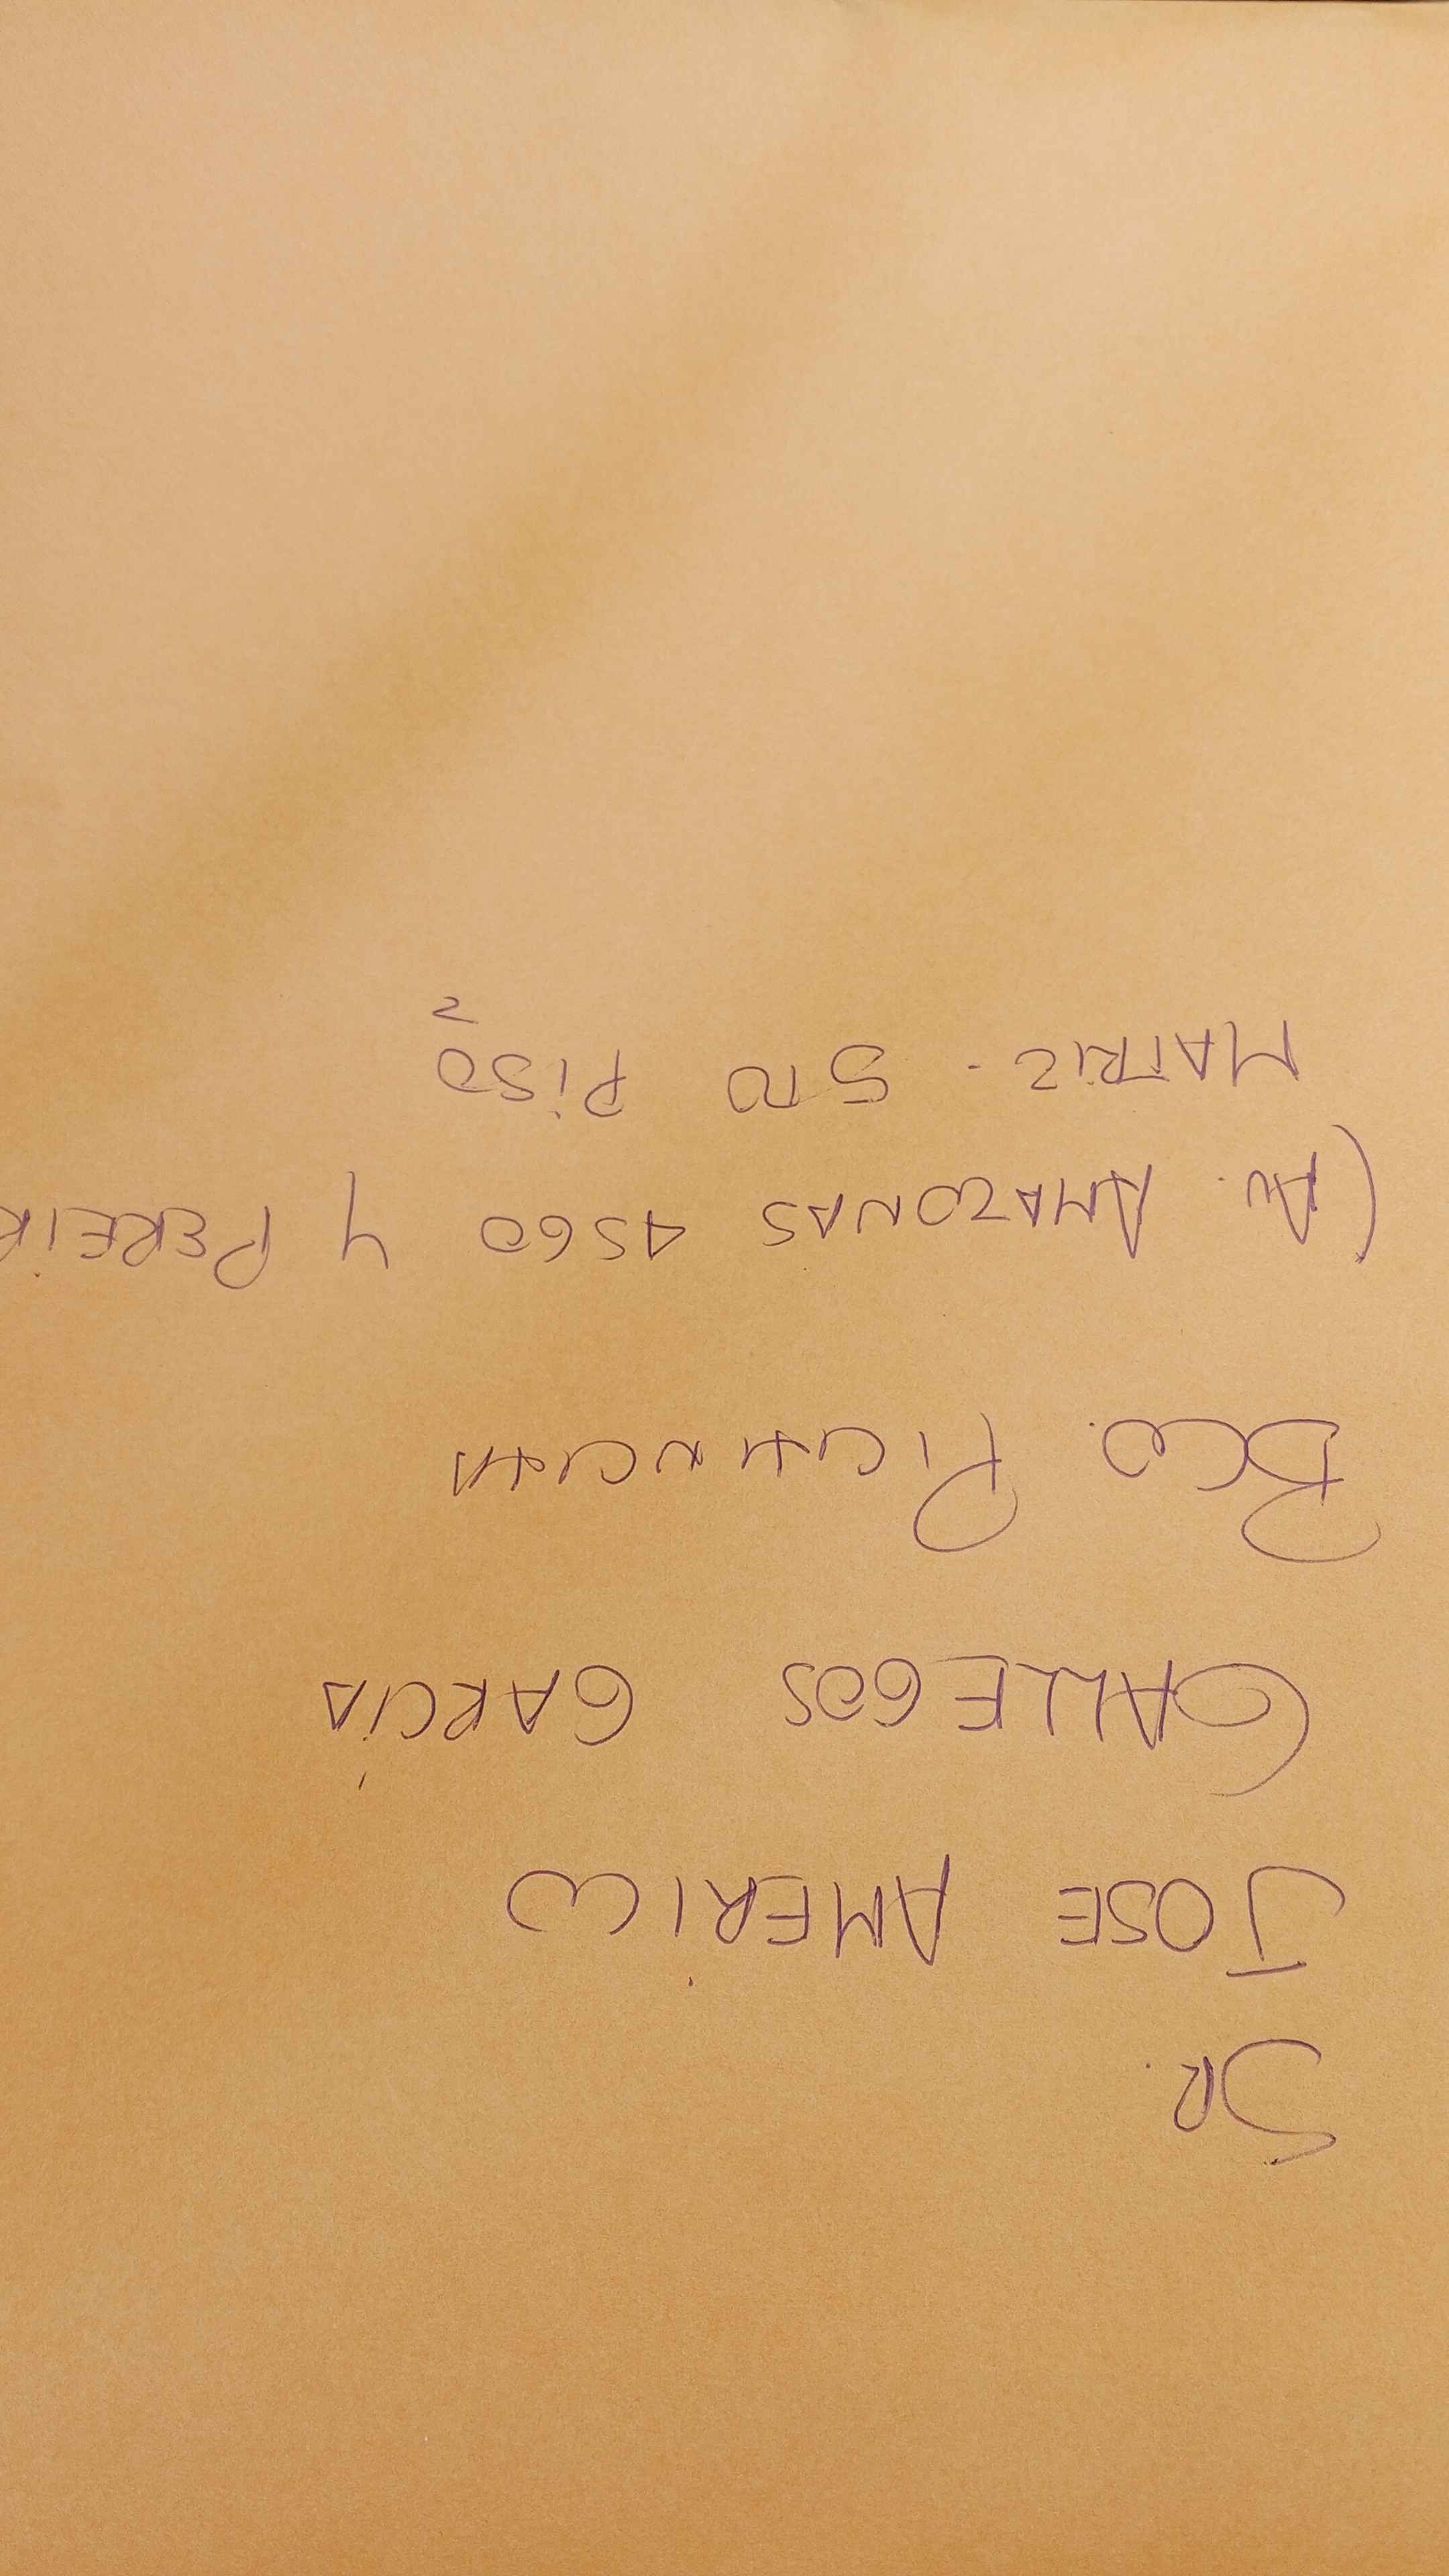 SR.
JOSE AMERICO
GALLEGOS GARCÍA
BCO. PICHINCHA
(AV. AMAZONAS 4560 Y PEREIR
MATRIZ - 5TO PISO
2